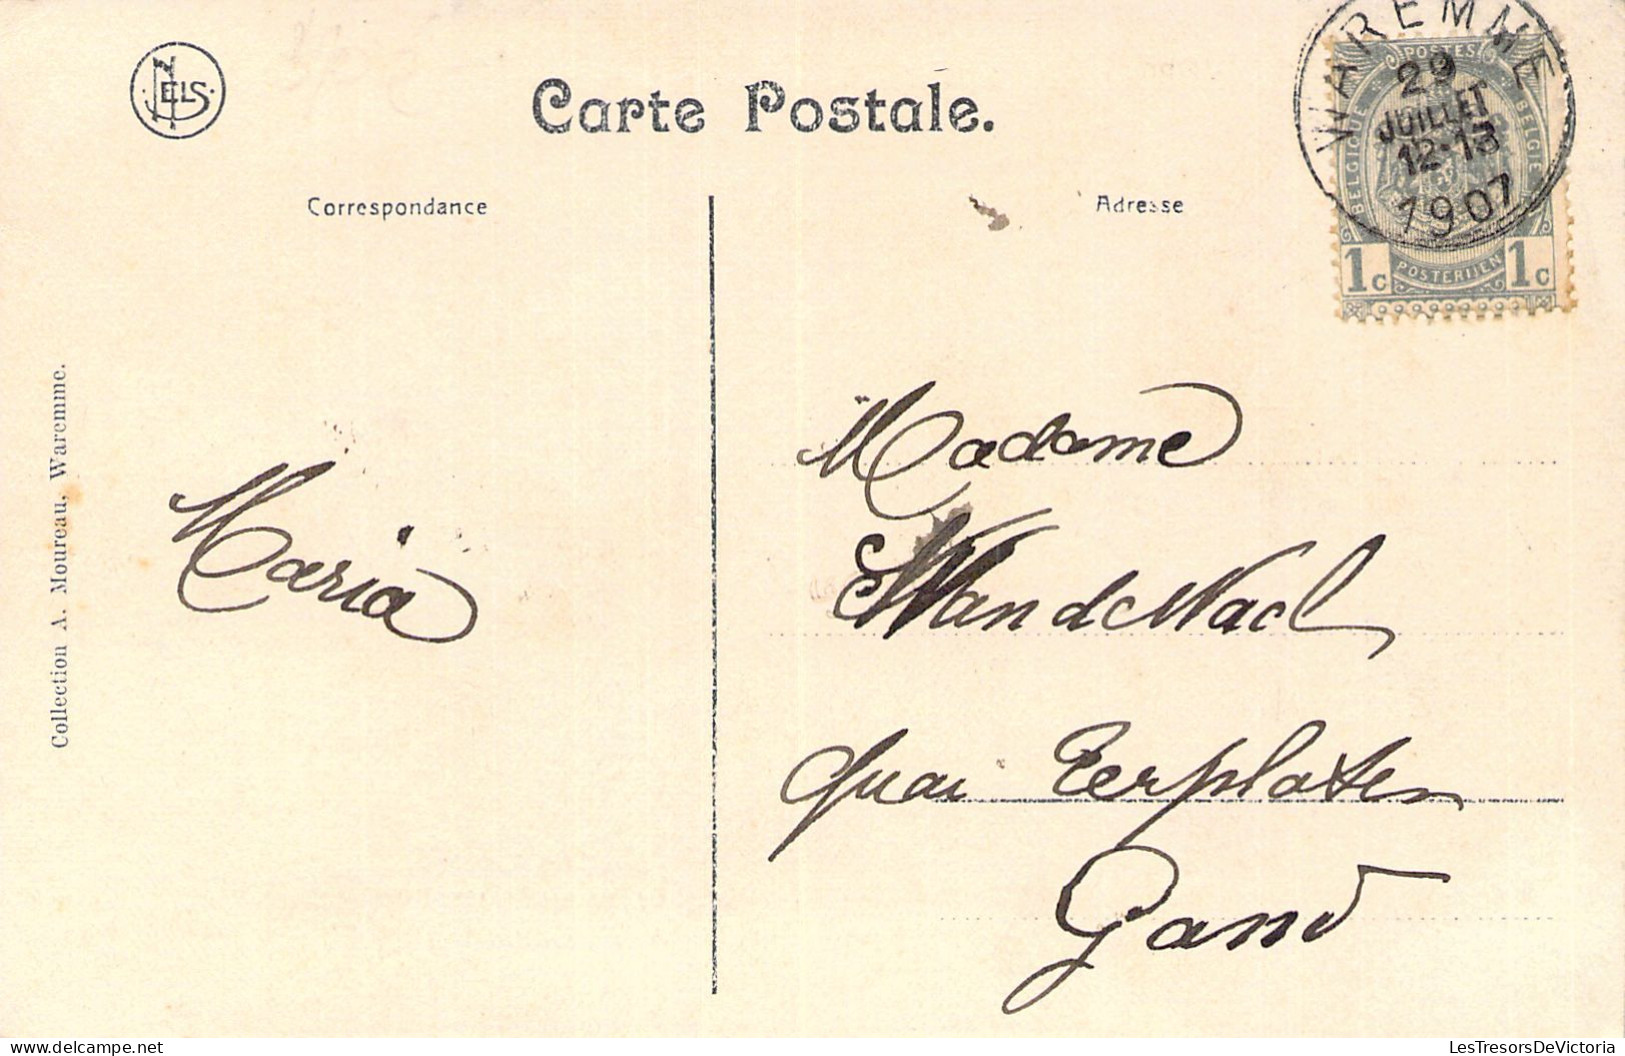 NELS
Carte Postale.
WAREMME
29
JUILLET
12-13
1907
POSTES
BELGIQUE
BELGIE
1c POSTERIJEN 1c
Correspondance
Adresse
Collection A. Moureau, Waremme.
Maria
Madame
Van de Nacl
Quai Terplaten
Gand
LesTresorsDeVictoria